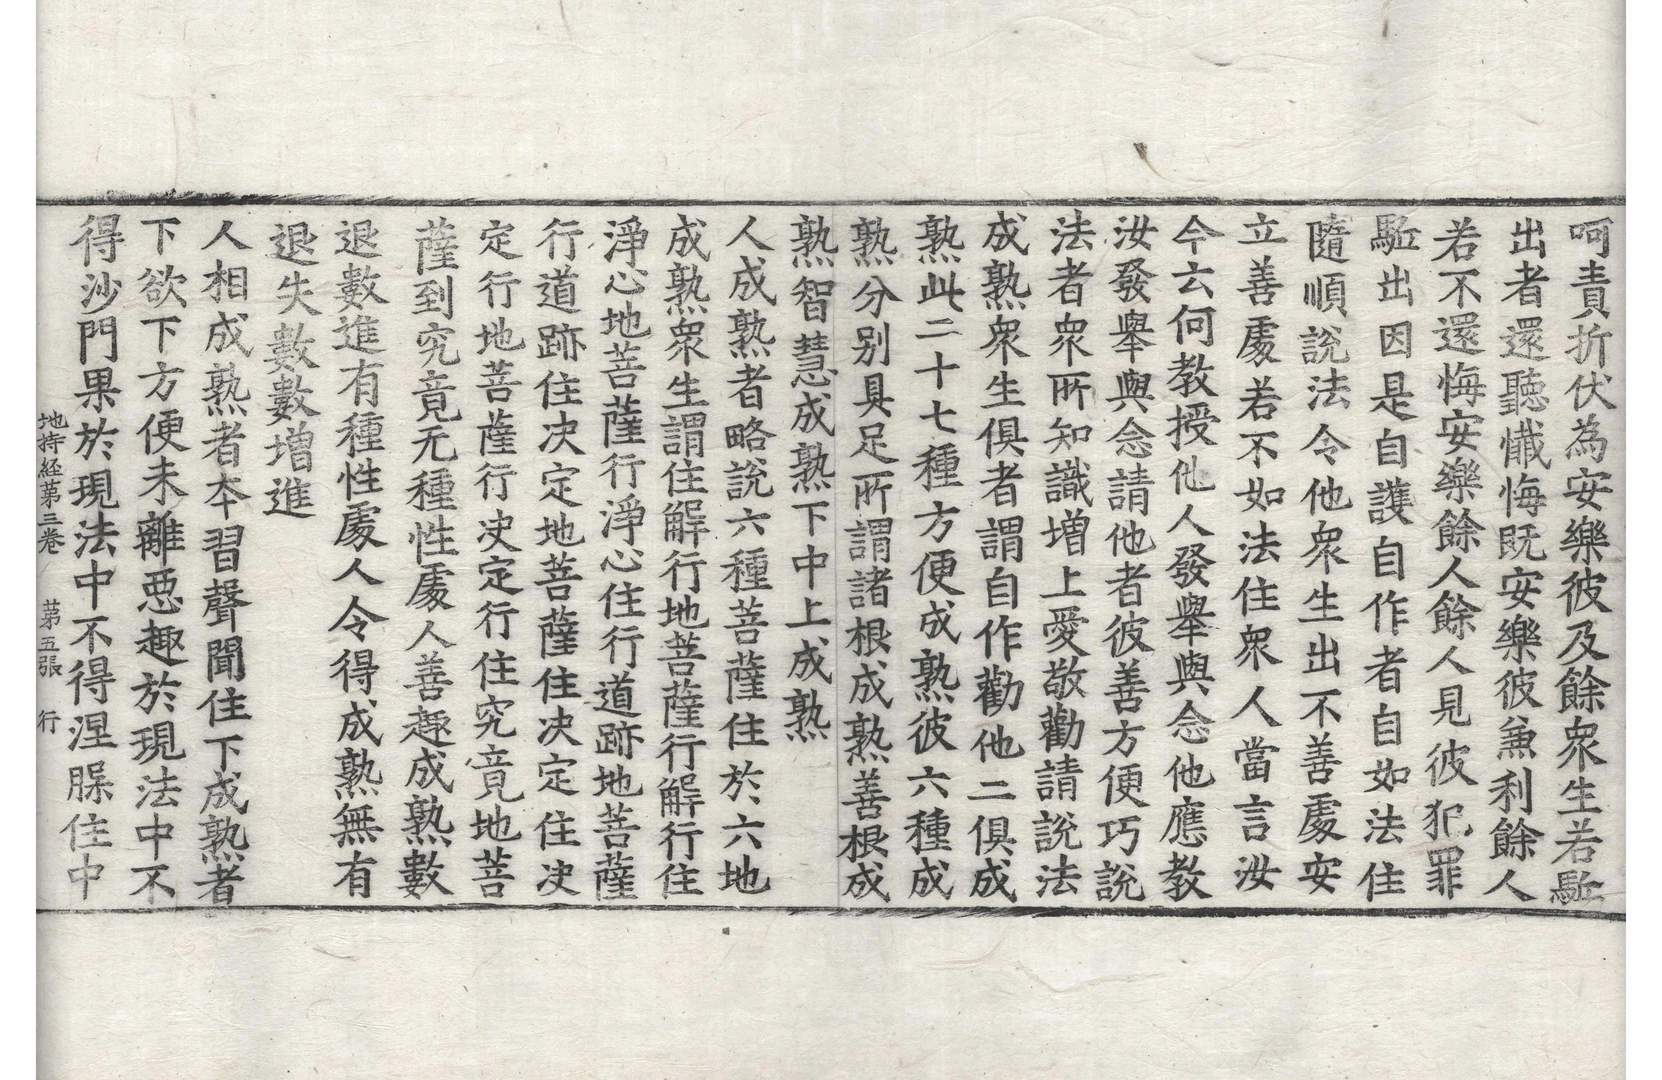 呵責折伏為安樂彼及餘衆生若駈
出者還聽懺悔既安樂彼兼利餘人
若不還悔安樂餘人餘人見彼犯罪
駈出因是自護自作者自如法住
隨順說法令他衆生出不善處安
立善處若不如法住衆人當言汝
今云何教授他人發舉與念他應教
汝發舉與念請他者彼善方便巧說
法者衆所知識增上愛敬勸請說法
成熟衆生俱者謂自作勸他二俱成
熟此二十七種方便成熟彼六種成
熟分别具足所謂諸根成熟善根成
熟智慧成熟下中上成熟
人成熟者略說六種菩薩住於六地
成熟衆生謂住解行地菩薩行解行住
淨心地菩薩行淨心住行道跡地菩薩
行道跡住决定地菩薩住决定住决
定行地菩薩行决定行住究竟地菩
薩到究竟无種性處人善趣成熟數
退數進有種性處人令得成熟無有
退失數數增進
人相成熟者本習聲聞住下成熟者
下欲下方便未離惡趣於現法中不
得沙門果於現法中不得涅槃住中
地持経第三卷 第五張 行